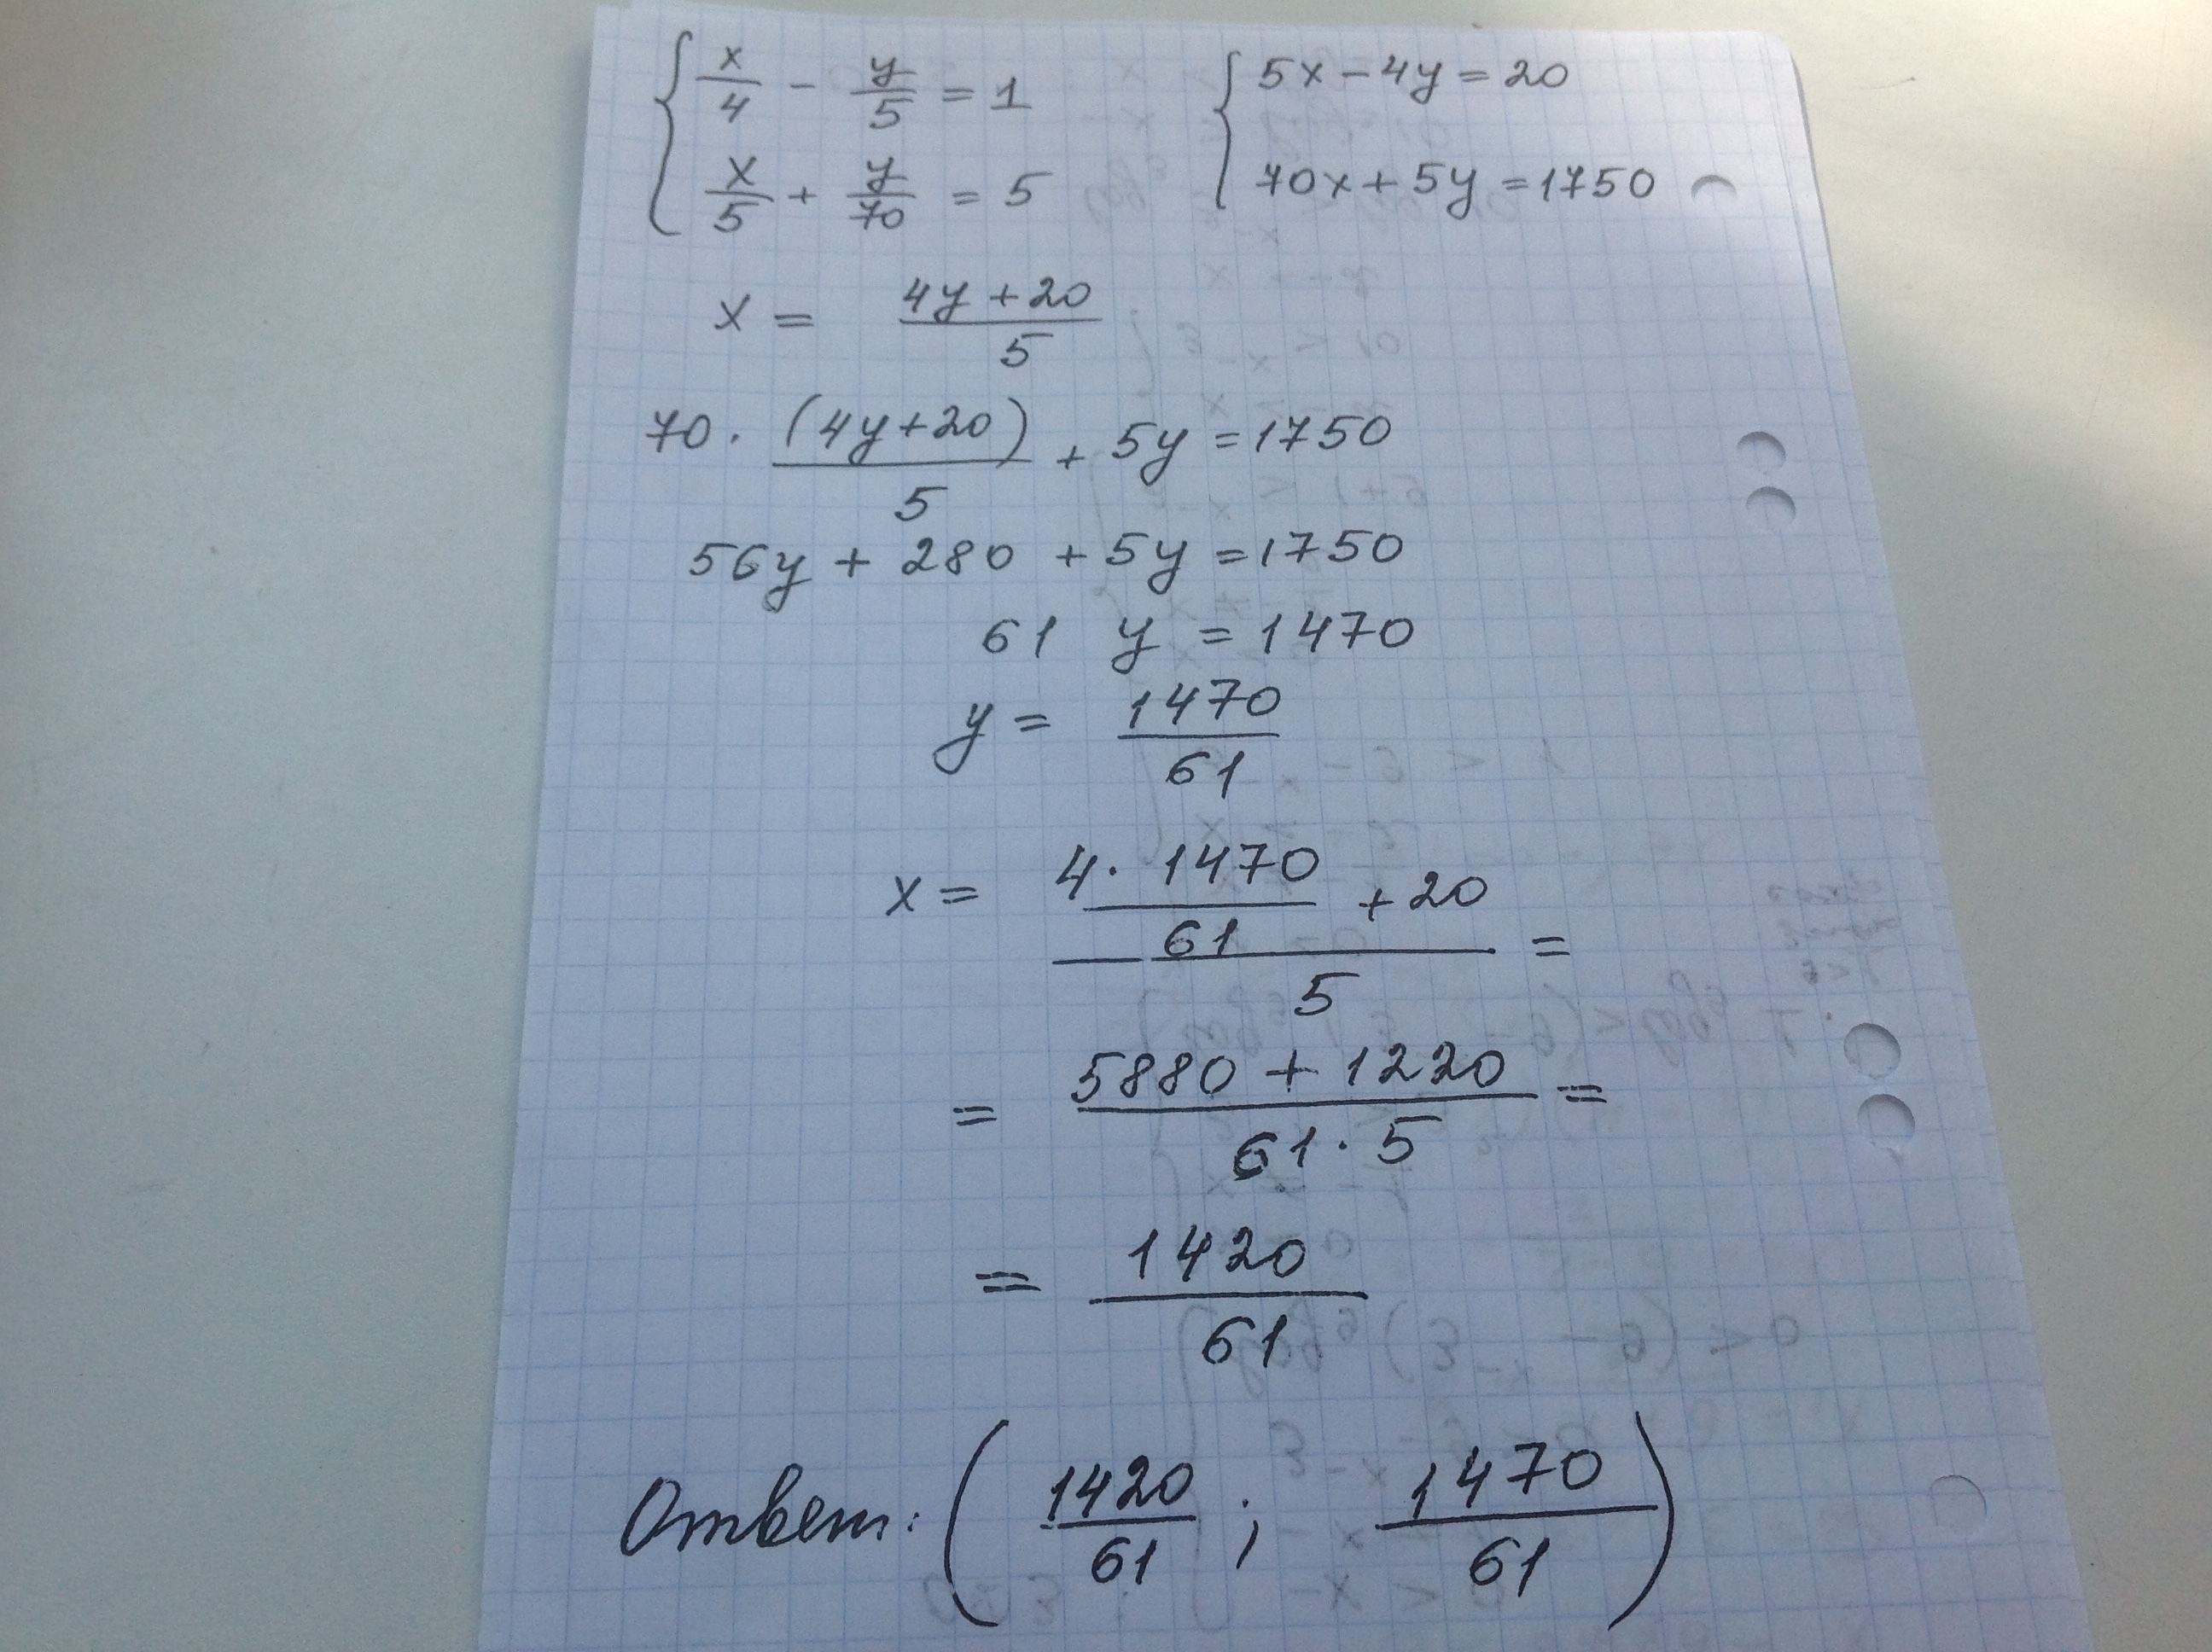 { x/4 - y/5 = 1
x/5 + y/70 = 5
{ 5x - 4y = 20
70x + 5y = 1750
x = (4y + 20)/5
70 · (4y+20)/5 + 5y = 1750
56y + 280 + 5y = 1750
61 y = 1470
y = 1470/61
x = (4 · 1470/61 + 20)/5 =
= (5880 + 1220)/(61 · 5) =
= 1420/61
Ответ: (1420/61 ; 1470/61)